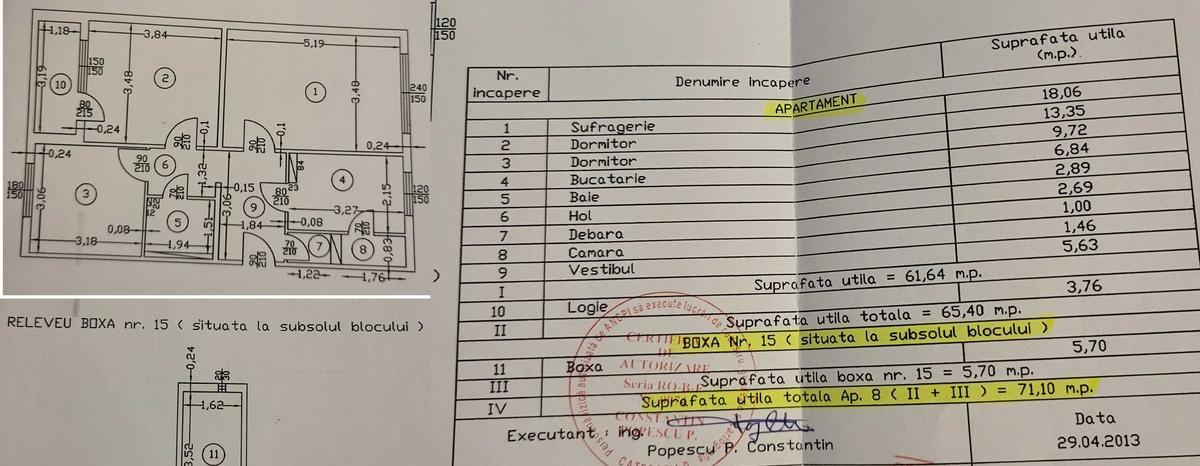 1,18
3,84
5,19
120
150
150
150
3,19
10
2
3,48
1
3,48
240
150
80
215
0,24
90
210
0,1
90
210
0,1
0,24
0,24
90
210
6
1,32
84
180
150
3
3,06
70
210
0,15
80
210
23
4
2,15
120
150
9
3,06
3,27
5
1,51
0,08
1,84
0,08
70
210
3,18
1,94
90
210
70
210
7
8
0,83
1,22
1,76
)
RELEVEU BOXA nr. 15 ( situata la subsolul blocului )
0,24
1,62
3,52
11
Nr. incapere Denumire incapere Suprafata utila (m.p.).
APARTAMENT
1 Sufragerie 18,06
2 Dormitor 13,35
3 Dormitor 9,72
4 Bucatarie 6,84
5 Baie 2,89
6 Hol 2,69
7 Debara 1,00
8 Camara 1,46
9 Vestibul 5,63
I Suprafata utila = 61,64 m.p.
10 Logie 3,76
II Suprafata utila totala = 65,40 m.p.
BOXA Nr. 15 ( situata la subsolul blocului )
11 Boxa 5,70
III Suprafata utila boxa nr. 15 = 5,70 m.p.
IV Suprafata utila totala Ap. 8 ( II + III ) = 71,10 m.p.
Executant : ing.
Popescu P. Constantin
Data
29.04.2013
AUTORIZARE
CONSTANTIN
POPESCU P.